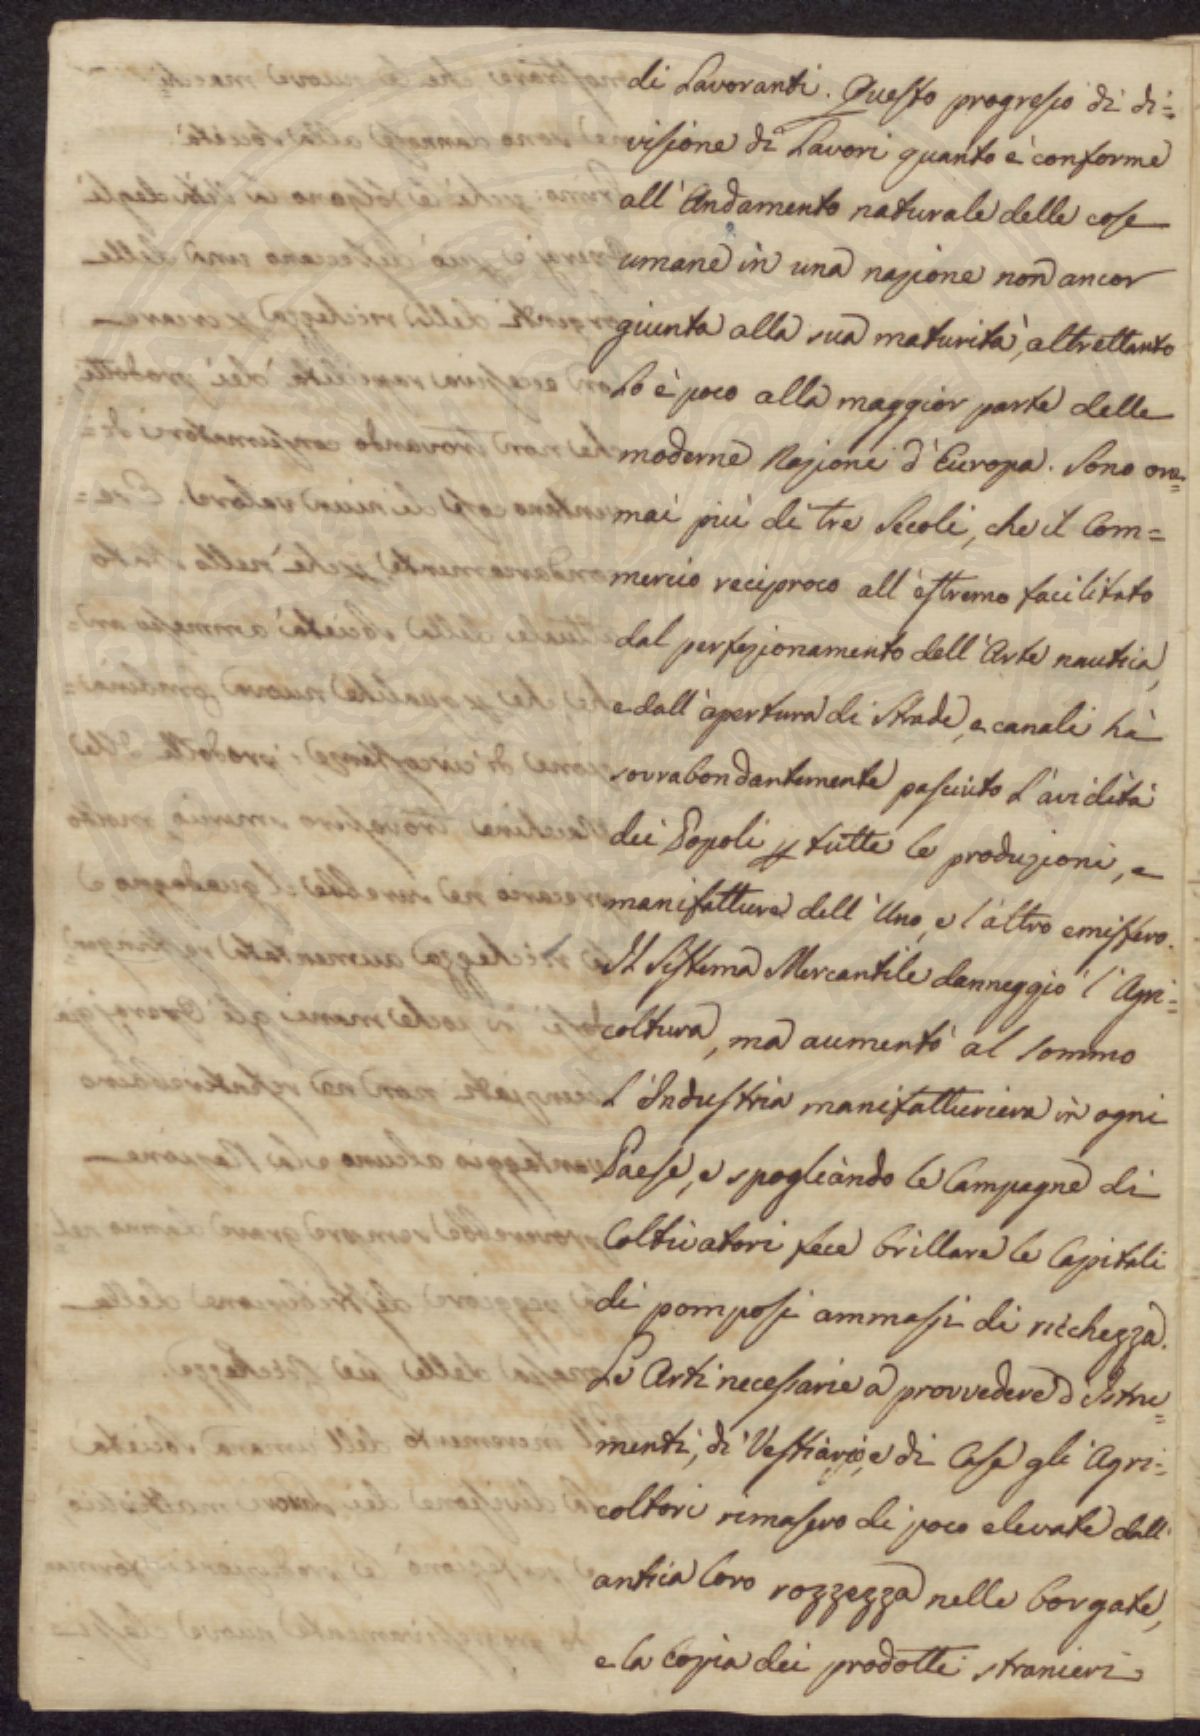 di Lavoranti. Questo progresso di di=
visione di Lavori quanto è conforme
all'Andamento naturale delle cose
umane in una nazione non ancor
giunta alla sua maturità, altrettanto
Lo è poco alla maggior parte delle
moderne Nazioni d'Europa. Sono ora=
mai più di tre Secoli, che il Com=
mercio reciproco all'estremo facilitato
dal perfezionamento dell'Arte nautica,
e dall'apertura di Strade, e canali hà
sovrabondantemente pasciuto L'avidità
dei Popoli p tutte le produzioni, e
manifatture dell'Uno, e l'altro emisfero.
Il Sistema Mercantile danneggiò l'Agri=
coltura, ma aumentò al sommo
L'Industria manifatturiera in ogni
Paese, e spogliando le Campagne di
Coltivatori fece brillare le Capitali
di pomposi ammassi di ricchezza.
Le Arti necessarie a provvedere d'Istru=
menti, di Vestiario, e di Case gli Agri=
coltori rimasero di poco elevate dall'
antica loro rozzezza nelle borgate,
e la copia dei prodotti stranieri